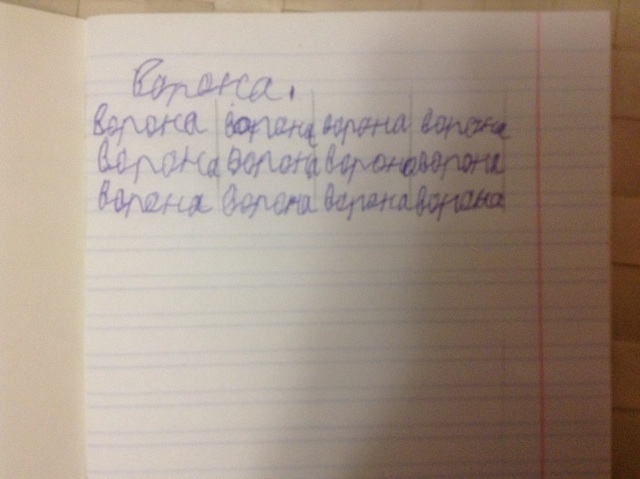 Ворона.
ворона ворона ворона ворона
ворона ворона ворона ворона
ворона ворона ворона ворона